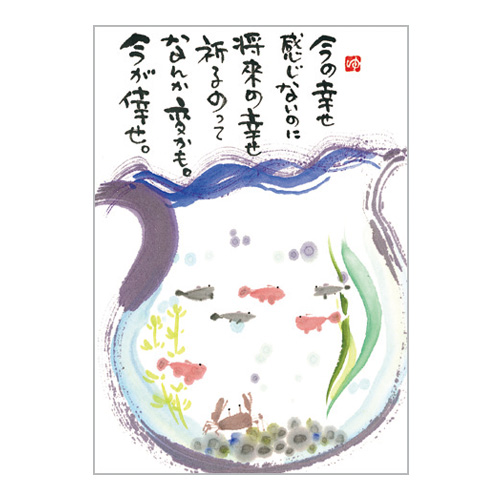 今の幸せ
感じないのに
将来の幸せ
祈るのって
なんか変かも。
今が倖せ。
ゆ